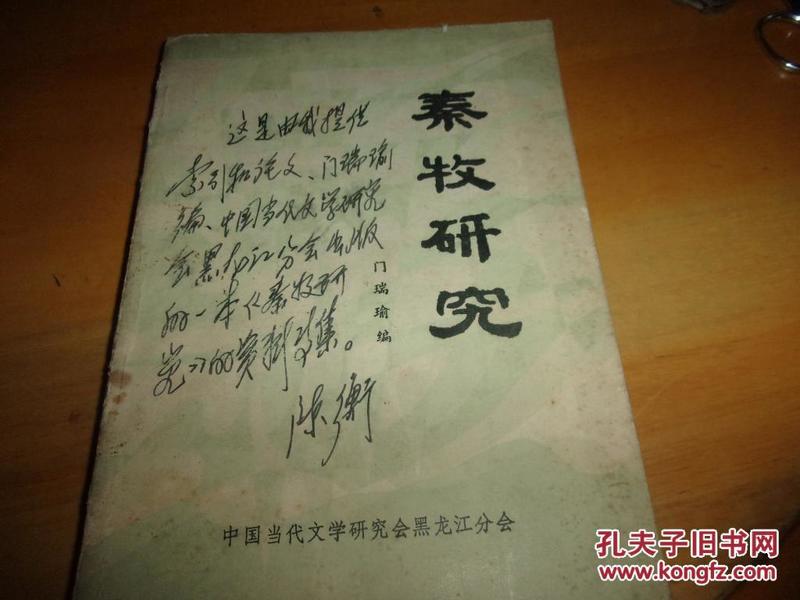 秦牧研究
门瑞瑜编
这是由我提供
索引和论文、门瑞瑜
编、中国当代文学研究
会黑龙江分会出版
的一本《秦牧研
究》的资料专集。
陈衡
中国当代文学研究会黑龙江分会
孔夫子旧书网
www.kongfz.com